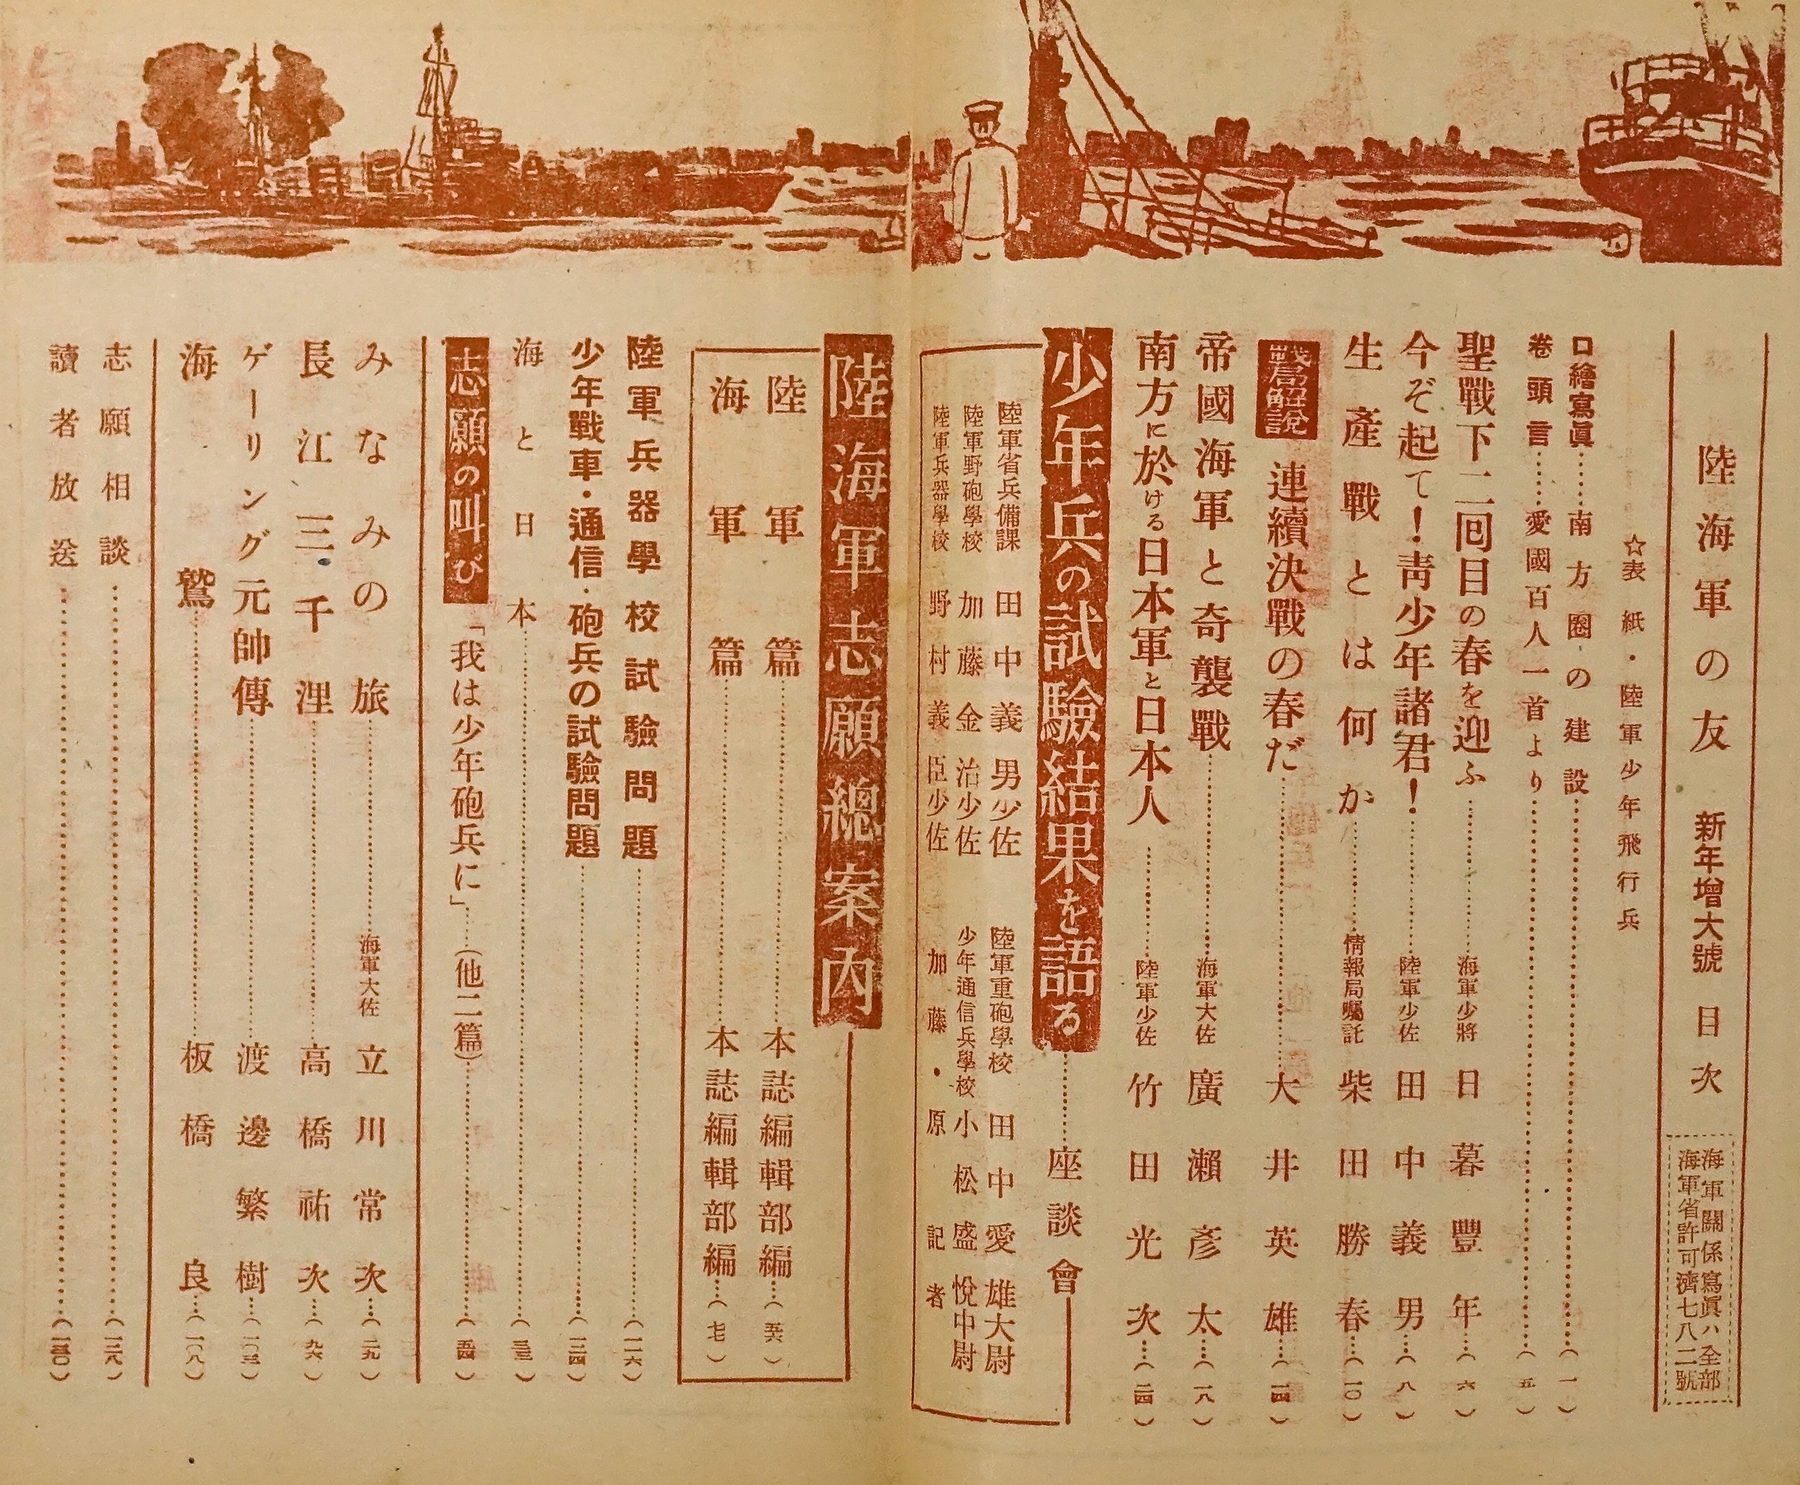 陸海軍の友 新年增大號 目次
海軍關係寫眞ハ全部
海軍省許可濟七八二號
☆表紙・陸軍少年飛行兵
口繪寫眞……南方圈の建設……(一)
卷頭言……愛國百人一首より……(五)
聖戰下二囘目の春を迎ふ……海軍少將 日暮豐年……(六)
今ぞ起て!靑少年諸君!……陸軍少佐 田中義男……(八)
生產戰とは何か……情報局囑託 柴田勝春……(一〇)
戰局解說 連續決戰の春だ……大井英雄……(一四)
帝國海軍と奇襲戰……海軍大佐 廣瀨彥太……(一八)
南方に於ける日本軍と日本人……陸軍少佐 竹田光次……(二四)
少年兵の試驗結果を語る……座談會
陸軍省兵備課 田中義男少佐 陸軍重砲學校 田中愛雄大尉
陸軍野砲學校 加藤金治少佐 少年通信兵學校 小松盛悅中尉
陸軍兵器學校 野村義臣少佐 加藤・原 記者
陸海軍志願總案內
陸軍篇……本誌編輯部編……(五六)
海軍篇……本誌編輯部編……(七二)
陸軍兵器學校試驗問題……(一一六)
少年戰車・通信・砲兵の試驗問題……(一二四)
海と日本……(三三)
志願の叫び 「我は少年砲兵に」……(他二篇)……(五四)
みなみの旅……海軍大佐 立川常次……(二九)
長江三千浬……高橋祐次……(九六)
ゲーリング元帥傳……渡邊繁樹……(一〇三)
海鷲……板橋良……(一〇八)
志願相談……(一二八)
讀者放送……(一三〇)